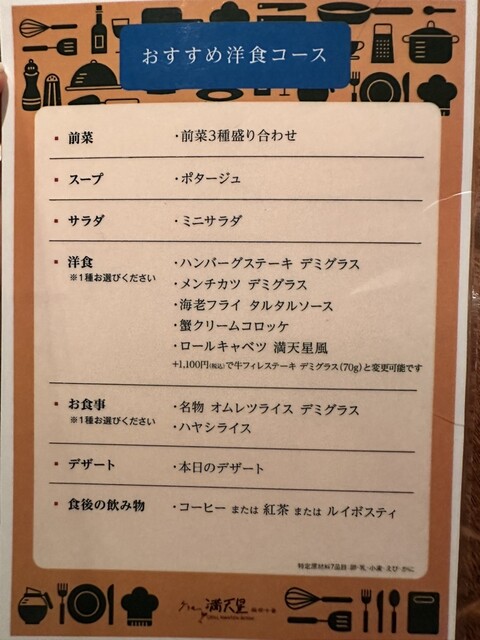 おすすめ洋食コース
前菜
・前菜3種盛り合わせ
スープ
・ポタージュ
サラダ
・ミニサラダ
洋食
※1種お選びください
・ハンバーグステーキ デミグラス
・メンチカツ デミグラス
・海老フライ タルタルソース
・蟹クリームコロッケ
・ロールキャベツ 満天星風
+1,100円(税込)で牛フィレステーキ デミグラス(70g)と変更可能です
お食事
※1種お選びください
・名物 オムレツライス デミグラス
・ハヤシライス
デザート
・本日のデザート
食後の飲み物
・コーヒー または 紅茶 または ルイボスティ
特定原材料7品目:卵・乳・小麦・えび・かに
満天星